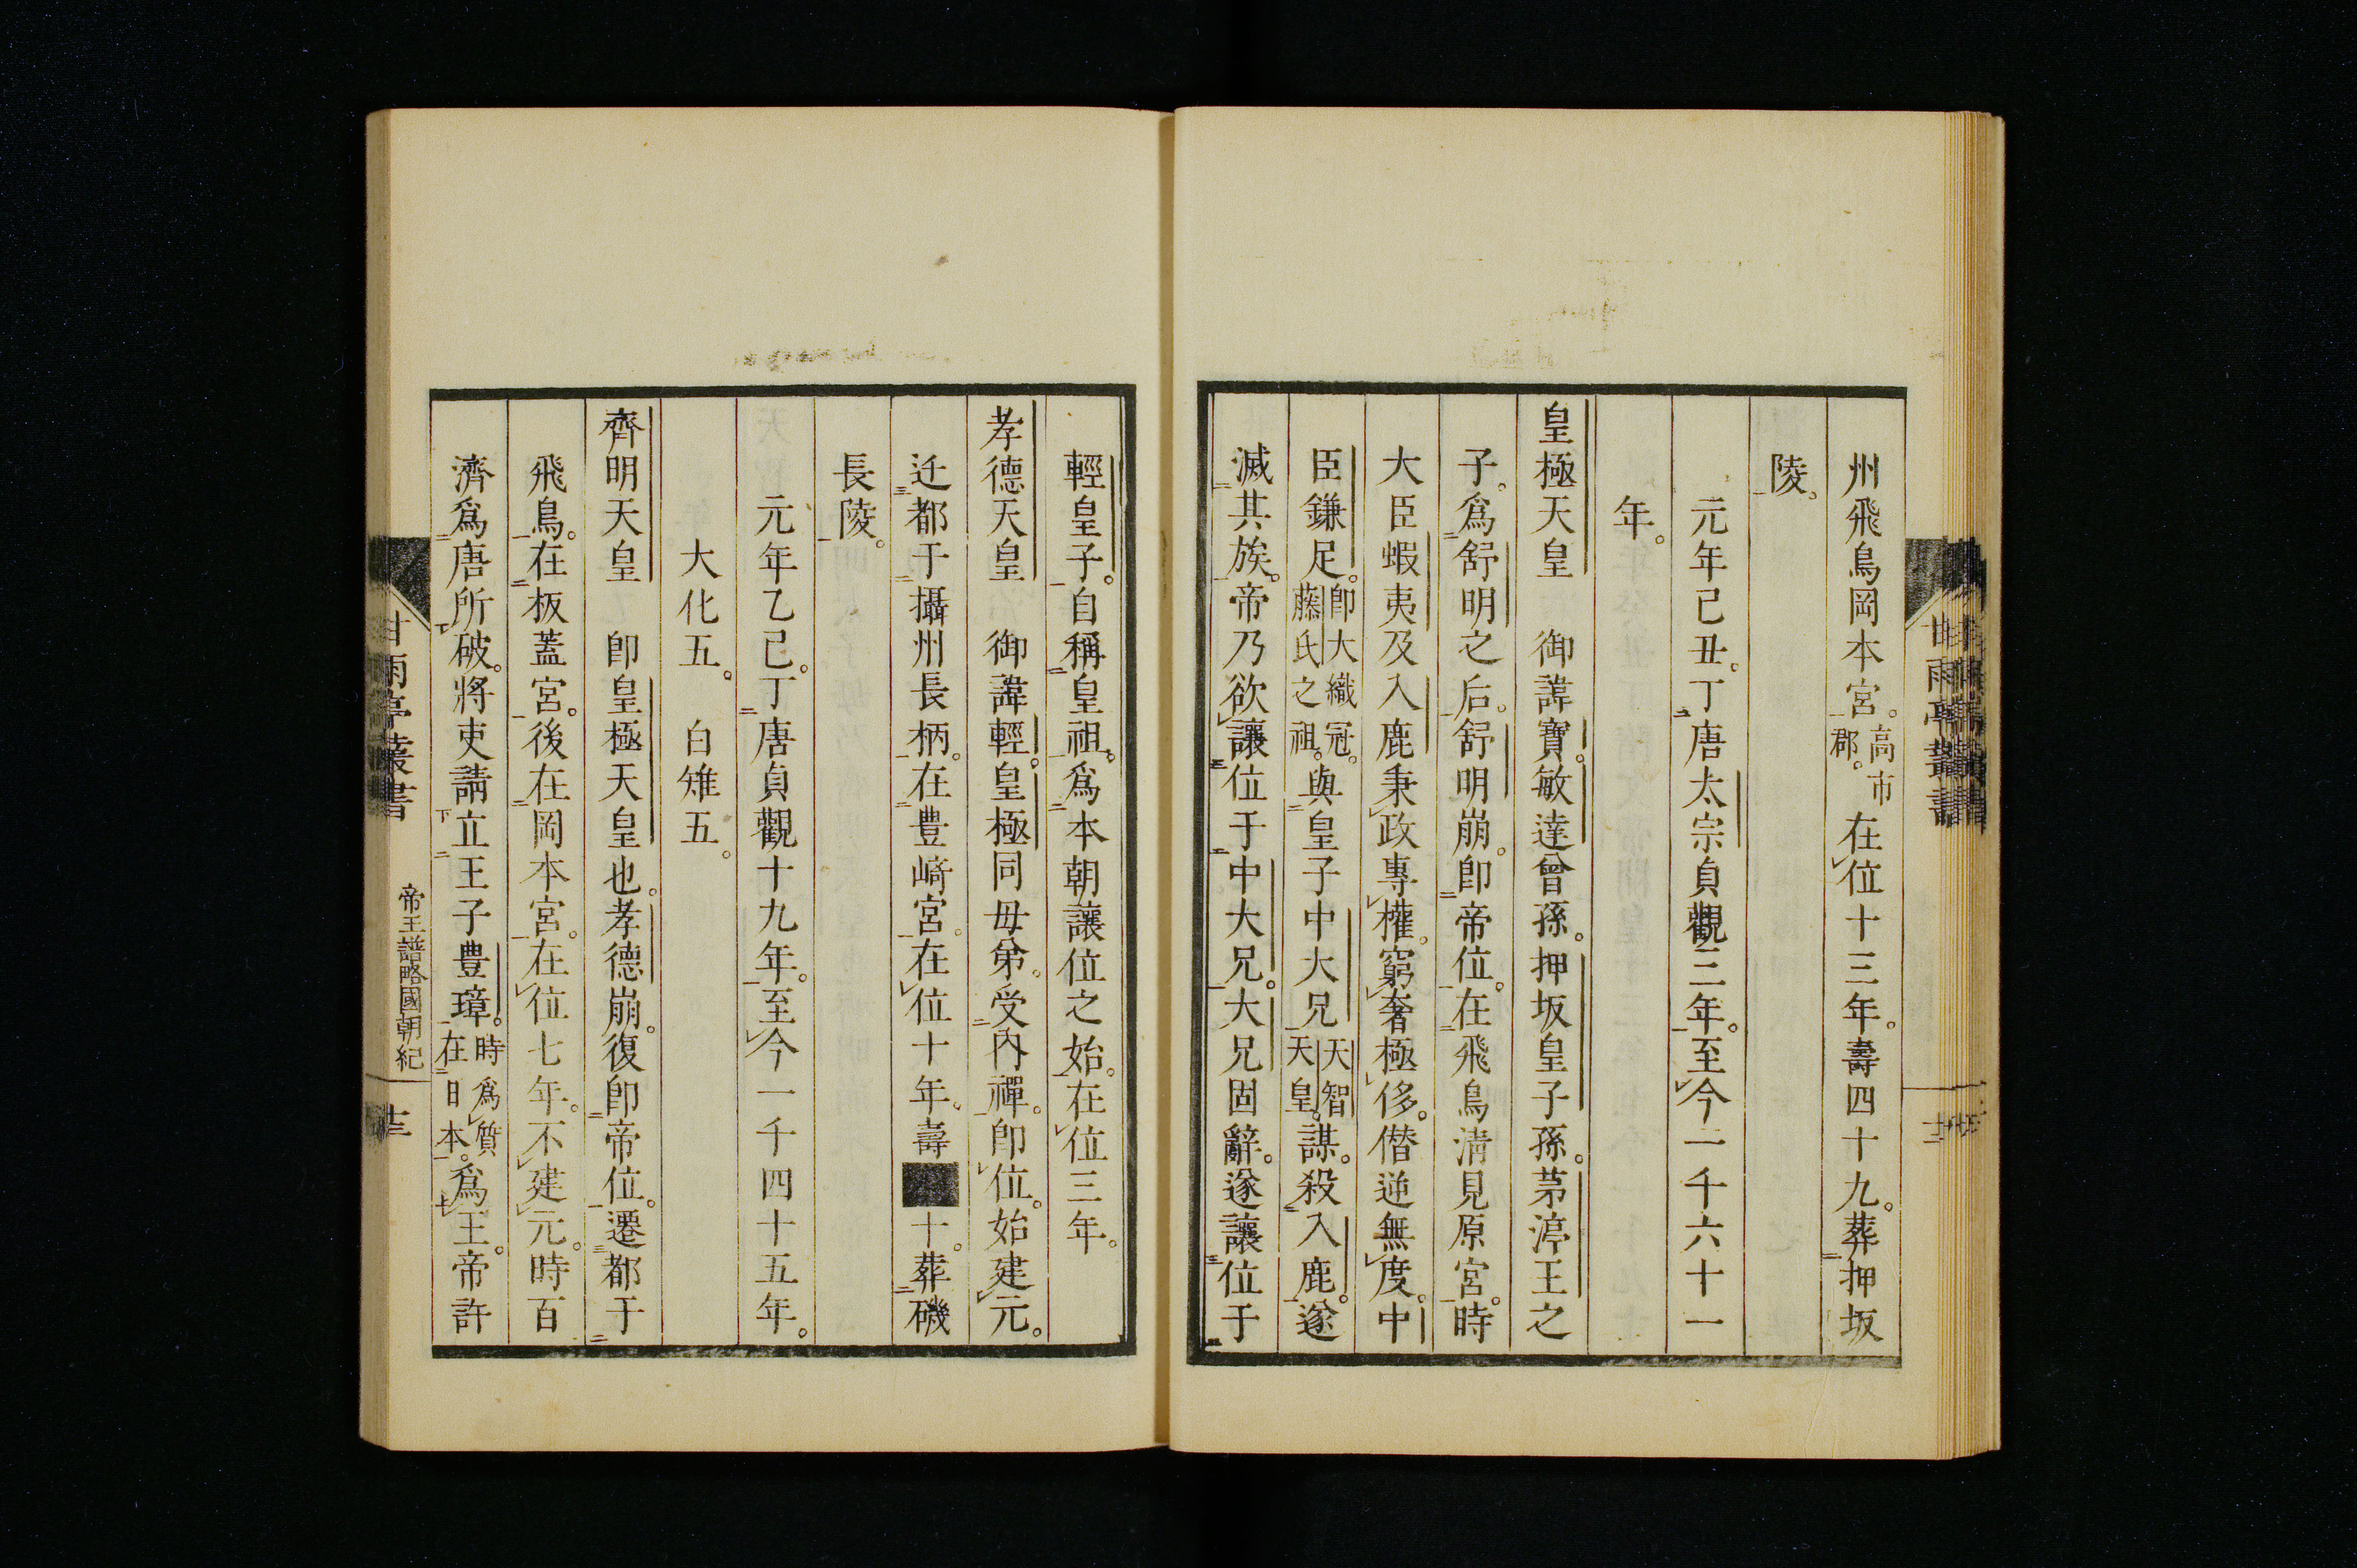 州飛鳥岡本宮。高市郡。在位十三年。壽四十九。葬押坂
陵。
元年己丑。丁唐太宗貞觀三年。至今一千六十一
年。
皇極天皇　御諱寶。敏達曾孫。押坂皇子孫。茅渟王之
子。爲舒明之后。舒明崩。卽帝位。在飛鳥淸見原宮。時
大臣蝦夷及入鹿秉政專權。窮奢極侈。僭逆無度。中
臣鎌足。卽大織冠。藤氏之祖。與皇子中大兄天智天皇。謀。殺入鹿。遂
滅其族。帝乃欲讓位于中大兄。大兄固辭。遂讓位于
輕皇子。自稱皇祖。爲本朝讓位之始。在位三年。
孝德天皇　御諱輕。皇極同母弟。受內禪。卽位。始建元。
迁都于攝州長柄。在豊﨑宮。在位十年。壽■十。葬磯
長陵。
元年乙巳。丁唐貞觀十九年。至今一千四十五年。
大化五。　白雉五。
齊明天皇　卽皇極天皇也。孝德崩。復卽帝位。遷都于
飛鳥。在板蓋宮。後在岡本宮。在位七年。不建元。時百
濟爲唐所破。將吏請立王子豊璋。時爲質在日本。爲王。帝許
甘雨亭叢書
帝王譜略國朝紀